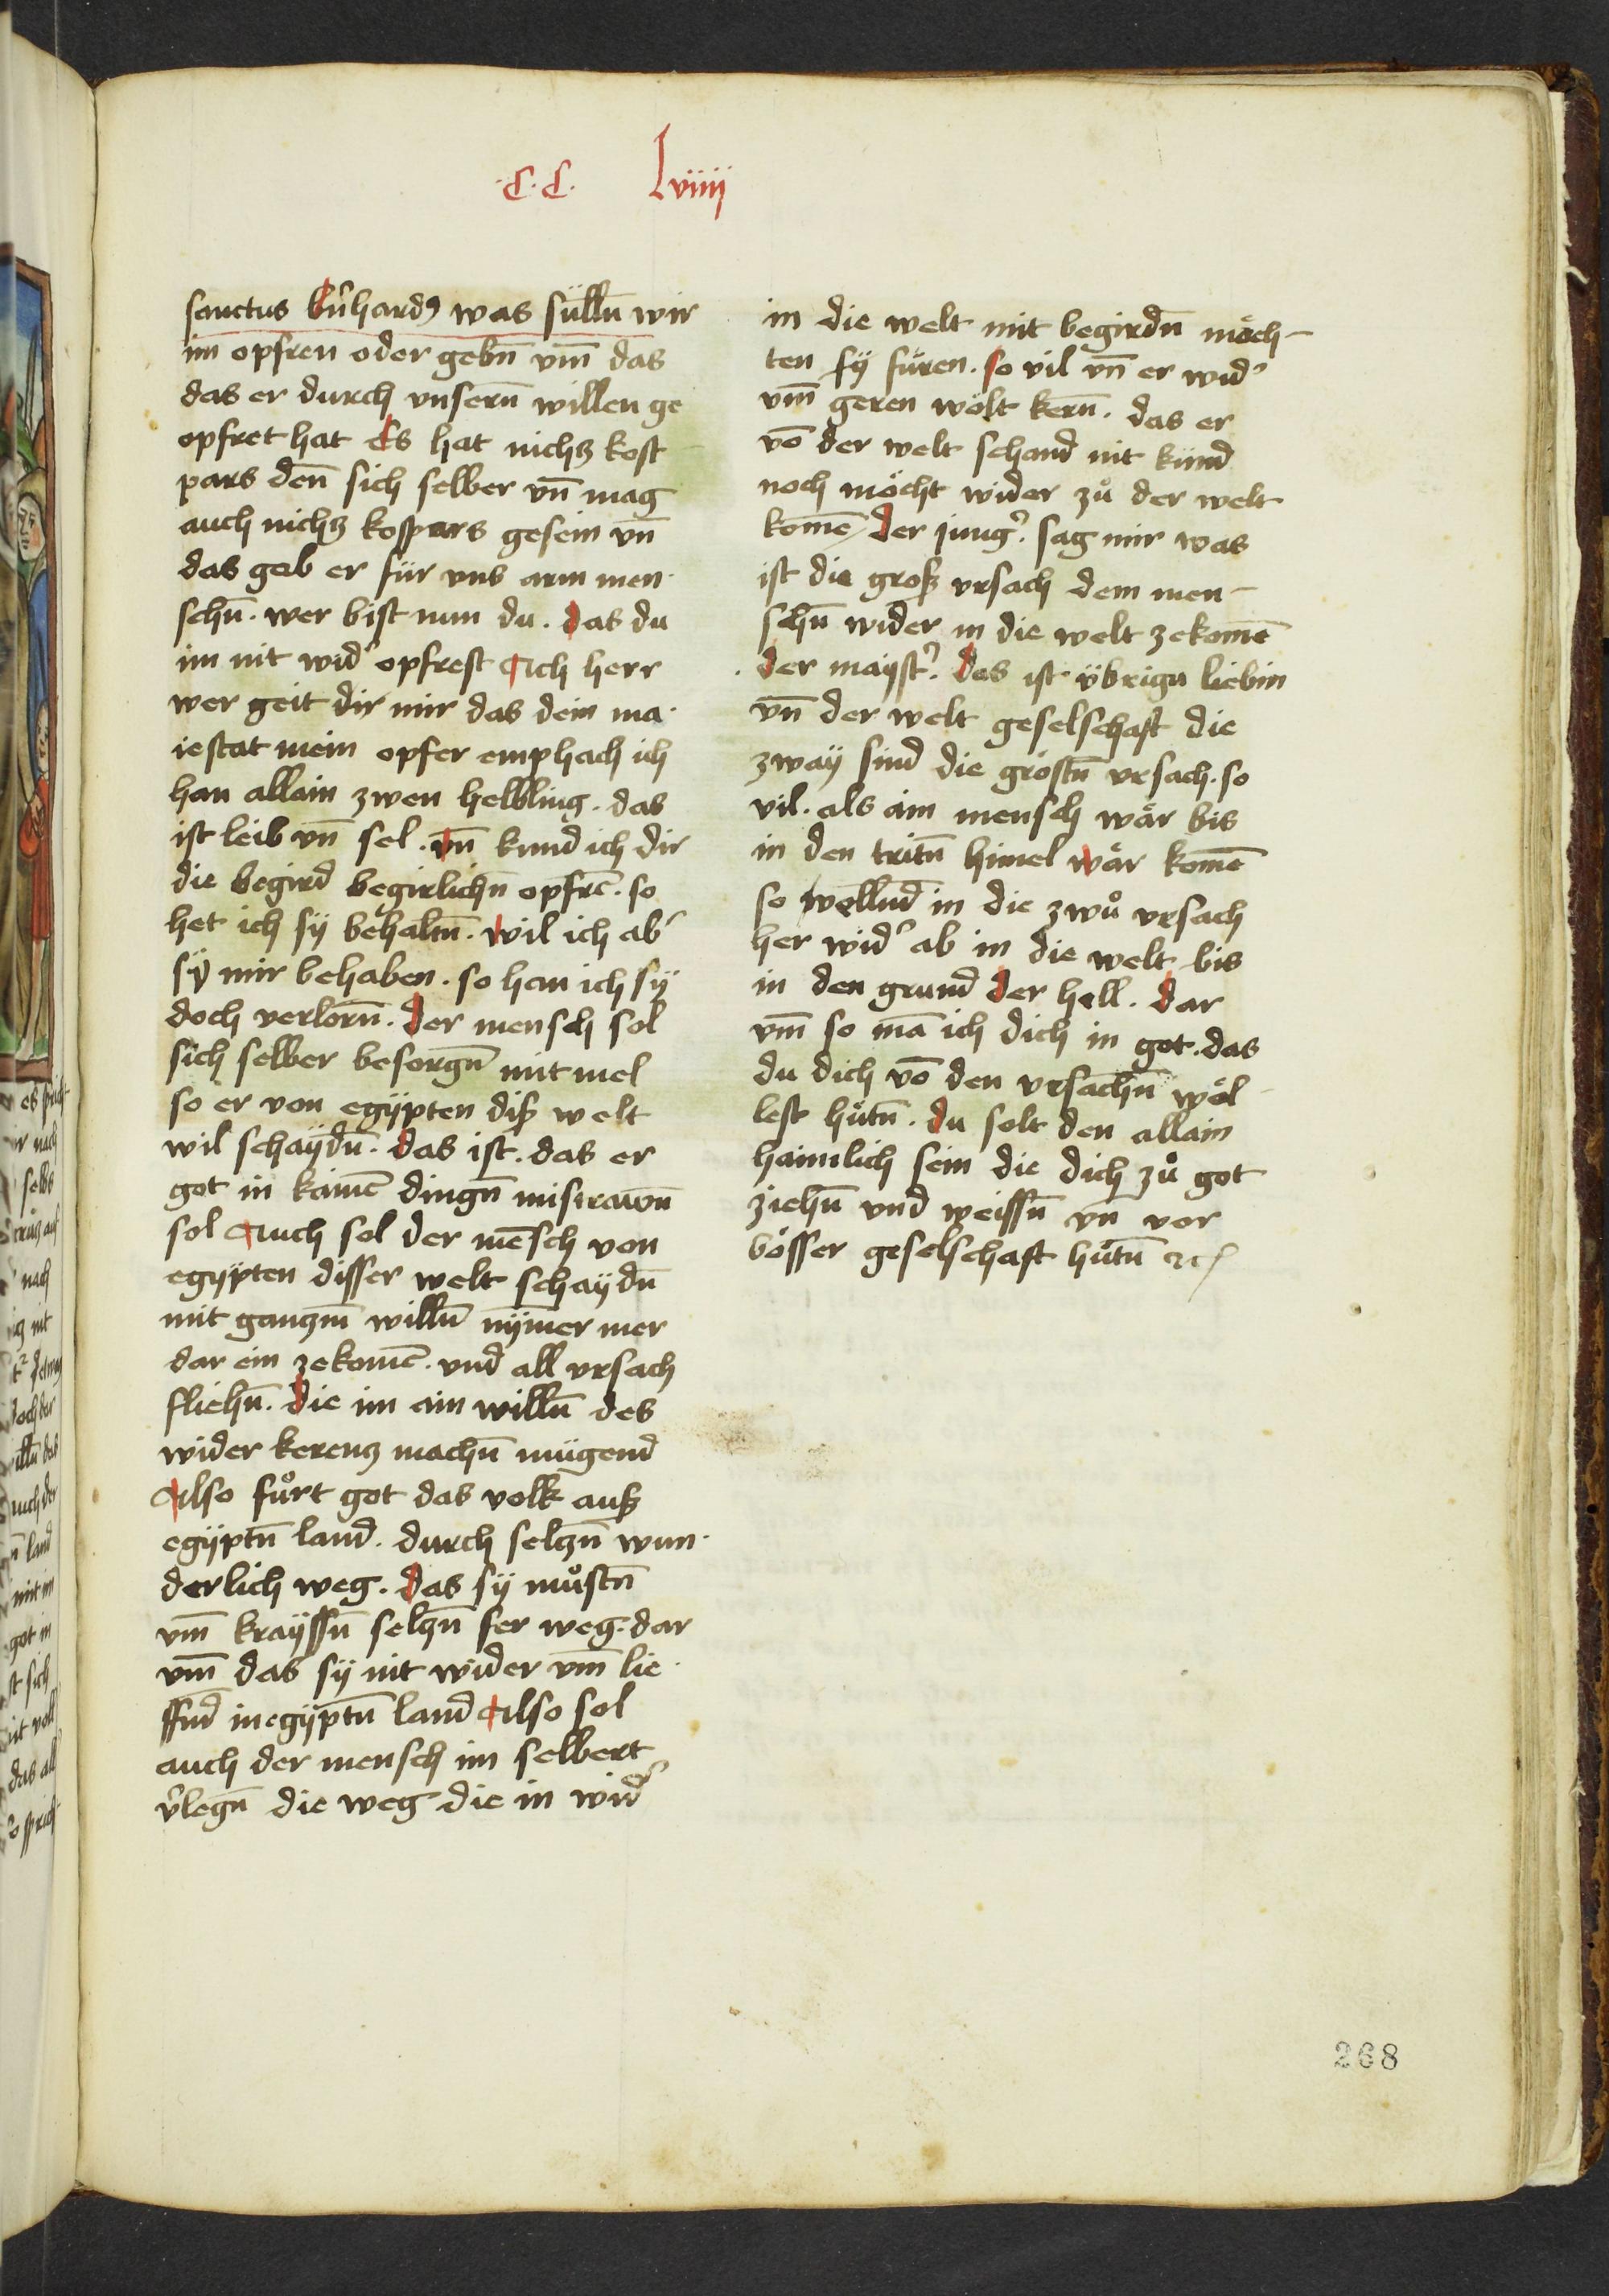 ·C·C· Lviiij
sanctus b̄nhardꝰ was sülln̄ wir
im opfren oder gebn̄ vm̄ das
das er durch vnsern̄ willen ge
opfret hat Es hat nichz kost
pars den̄ sich selber vn̄ mag
auch nichz kospars gesein vn̄
das gab er für vns arm men·
schn̄. wer bist nun du. das du
im nit wid᾽ opfrest Ach herr
wer geit dir mir das dein ma·
iestat mein opfer emphach ich
han allain zwen helbling. das
ist leib vn̄ sel. vn̄ kund ich dir
die begird begirlichn̄ opfrē. so
het ich sÿ behaltn̄. wil ich ab᾽
sÿ mir behaben. so han ich sÿ
doch verlorn̄. der mensch sol
sich selber besorgn̄ mit mel
so er von egÿpten diß welt
wil schaÿdn̄. das ist. das er
got in kainē dingn̄ mistrawn̄
sol Auch sol der mēsch von
egÿpten disser welt schaÿdn̄
mit ganzm̄ willn̄ nÿm̄er mer
dar ein zekomē. vnd all vrsach
fliehn̄. die im ain willn̄ des
wider kerenz machn̄ mügend
Also fůrt got das volk auß
egÿptn̄ land. durch selzn̄ wun·
derlich weg. das sÿ můstn̄
vm̄ kraÿssn̄ selzn̄ fer weg. dar
vm̄ das sÿ nit wider vm̄ lie·
ffnd̄ in egÿptn̄ land Also sol
auch der mensch im selbert
v̄legn̄ die weg die in wid᾽
in die welt mit begirdn̄ möch-
ten sÿ füren. so vil vn̄ er wid᾽
vm̄ geren wölt kern̄. das er
vō der welt schand nit künd
noch möcht wider zů der welt
komē der jung᾽. sag mir was
ist die groß vrsach dem men-
schn̄ wider in die welt zekomē
der maÿst᾽. das ist übrign liebin
vn̄ der welt geselschaft die
zwaÿ sind die gröstn̄ vrsach. so
vil. als ain mensch wär bis
in den tritn̄ himel wär komē
so wellnd̄ in die zwů vrsach
her wid᾽ ab in die welt bis
in den grund der hell. dar
vm̄ so mā ich dich in got. das
du dich vō den vrsachn̄ wöl
lest hůtn̄. du solt den allain
haimlich sein die dich zů got
ziehn̄ vnd weissn̄ vn̄ vor
bösser geselschaft hůtn̄ ꝛc
268